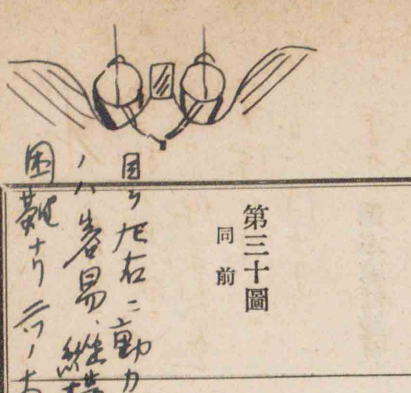 第三十圖
同前
目ヲ左右ニ動カ
ノハ容易、縦
困難ナリ二ツノ